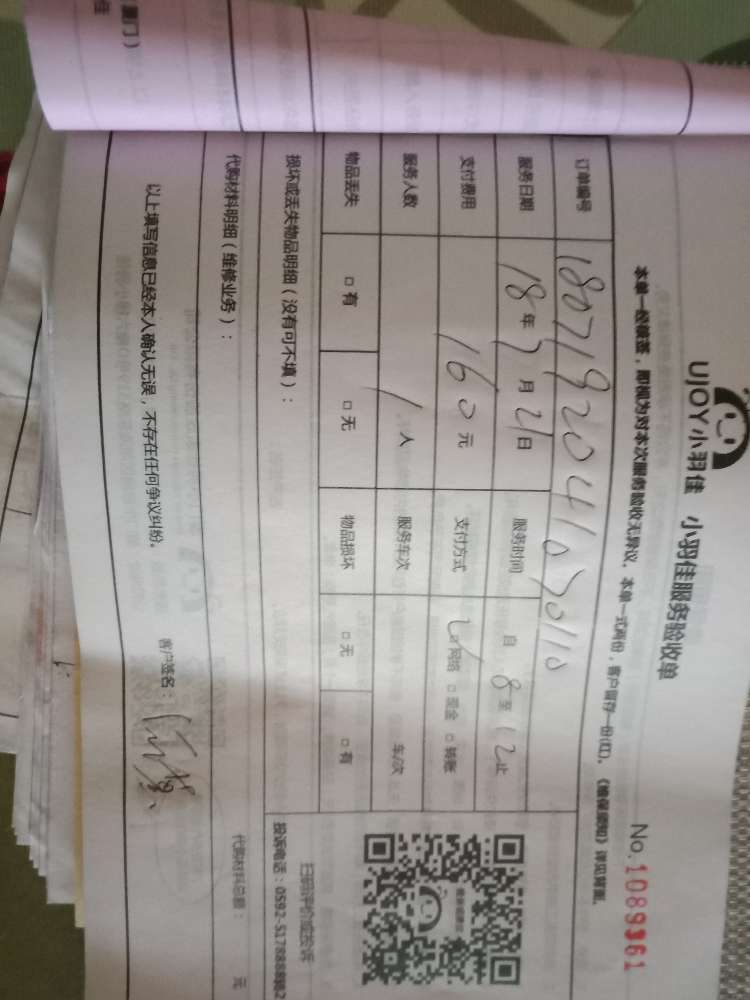 UJOY小羽佳 小羽佳服务验收单
No.
本单一经确签，即视为对本次服务验收无异议。本单一式两份，客户留存一份(红)。《维保须知》详见背面。
订单编号
服务日期 18年7月21日 服务时间 自 8 至 12 止
支付费用 160元 支付方式 网络 □现金 □转账
服务人数 1人 服务车次 车/次
物品丢失 □有 □无 物品损坏 □无 □有
损坏或丢失物品明细（没有可不填）：
扫码评价或投诉
投诉电话：0592-5178888转2
代购材料明细（维修业务）：
代购材料总额： 元
以上填写信息已经本人确认无误，不存在任何争议纠纷。
客户签名：
厦门）